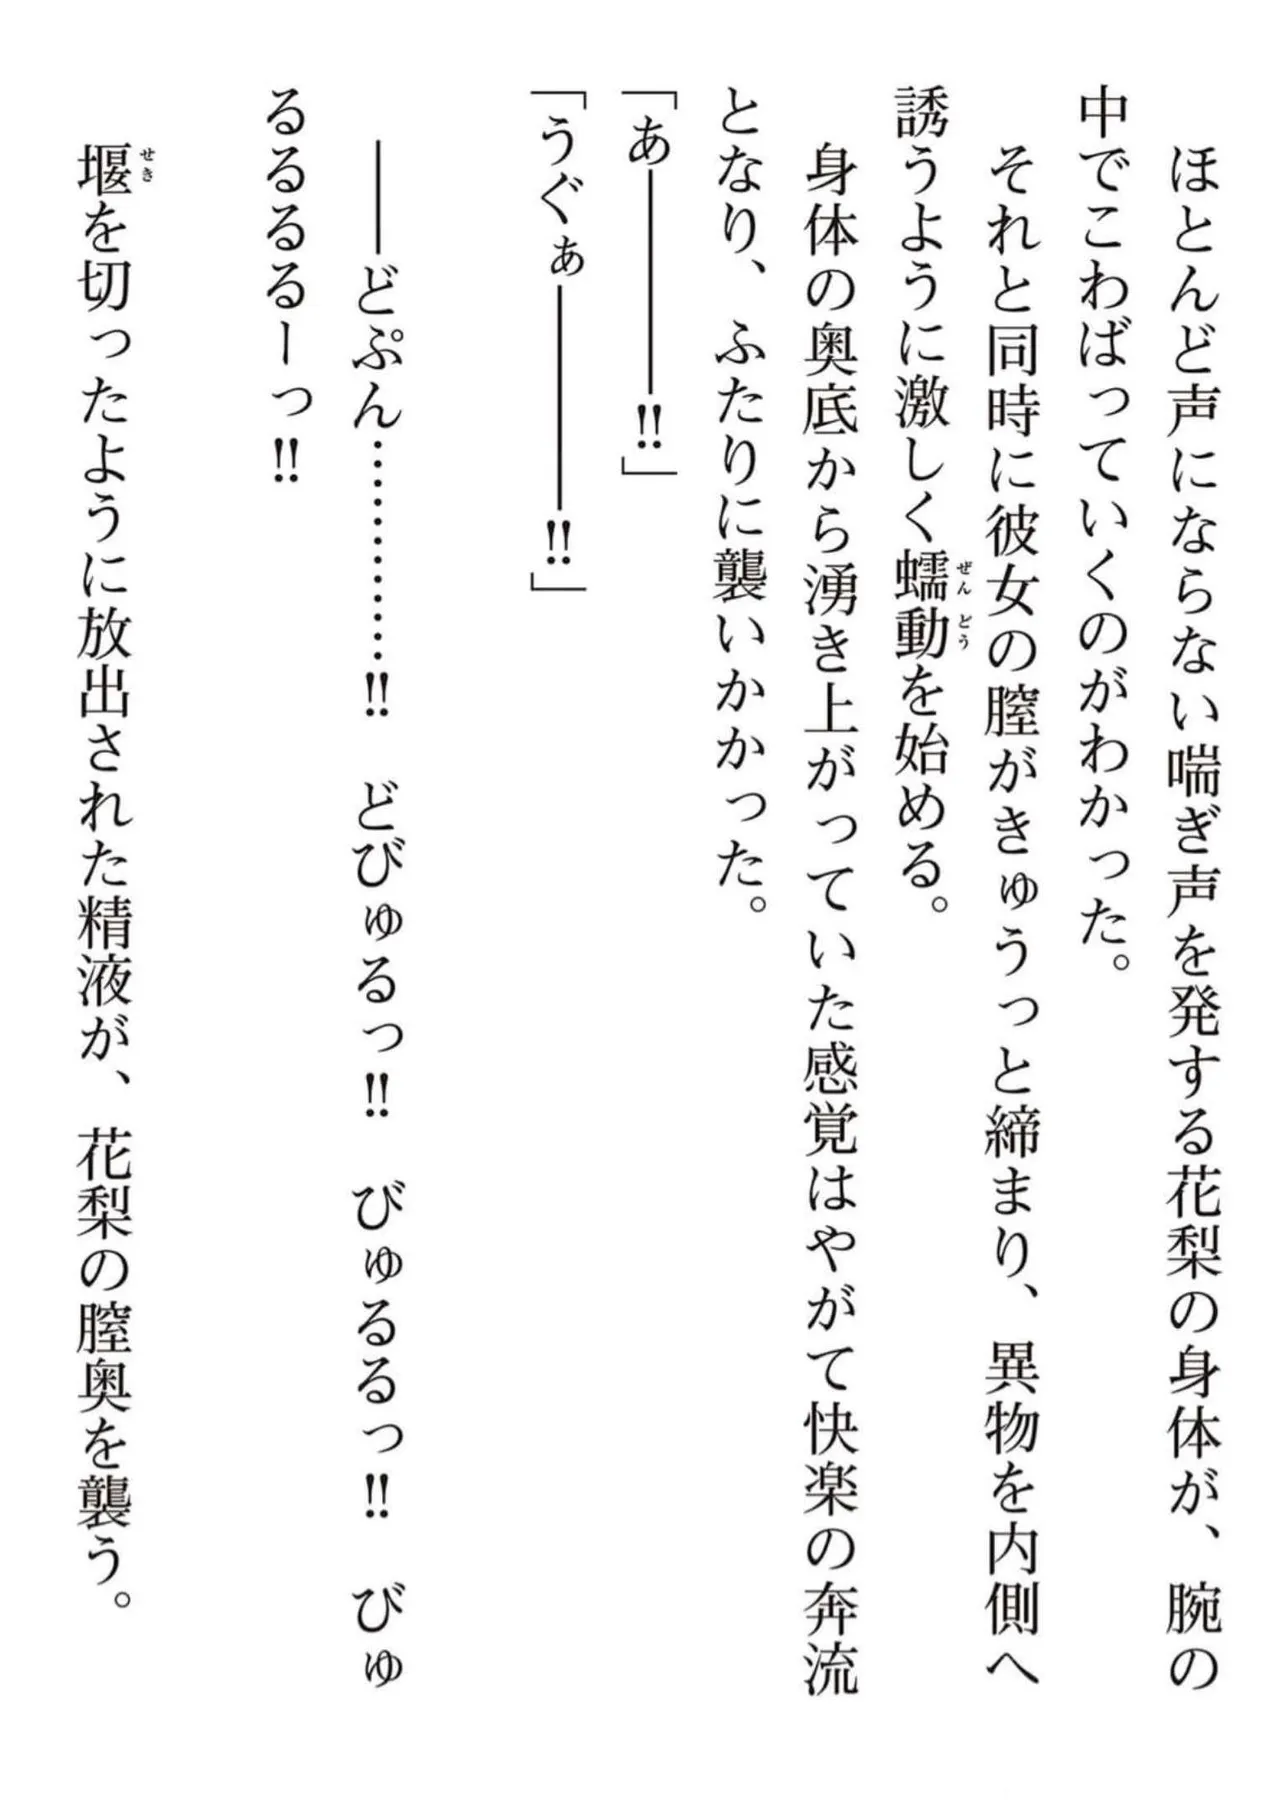 ほとんど声にならない喘ぎ声を発する花梨の身体が、腕の
中でこわばっていくのがわかった。
それと同時に彼女の膣がきゅうっと締まり、異物を内側へ
誘うように激しく蠕動を始める。
身体の奥底から湧き上がっていた感覚はやがて快楽の奔流
となり、ふたりに襲いかかった。
「あ――――!!」
「うぐぁ――――!!」
――どぷん…………!!　どびゅるっ!!　びゅるるっ!!　びゅ
るるるるーっ!!
堰を切ったように放出された精液が、花梨の膣奥を襲う。